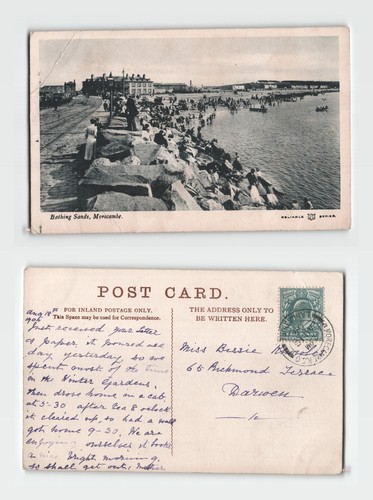 Bathing Sands, Morecambe.
RELIABLE SERIES.
POST CARD.
FOR INLAND POSTAGE ONLY.
This Space may be used for Correspondence.
THE ADDRESS ONLY TO
BE WRITTEN HERE.
Aug 18th
1906
Just received your letter
& paper, it poured all
day yesterday so we
spent most of the time
in the Winter Gardens,
then drove home in a cab,
at 5-30 after tea 8 oclock
it cleared up, so had a walk
got home 9-30. We are
enjoying ourselves it looks
a nice bright morning,
so shall get out,
Miss Bessie
66 Richmond Terrace
Darwen